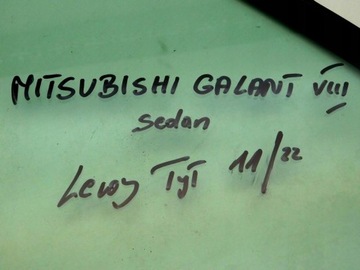 MITSUBISHI GALANT VIII
sedan
Lewy Tył 11/22